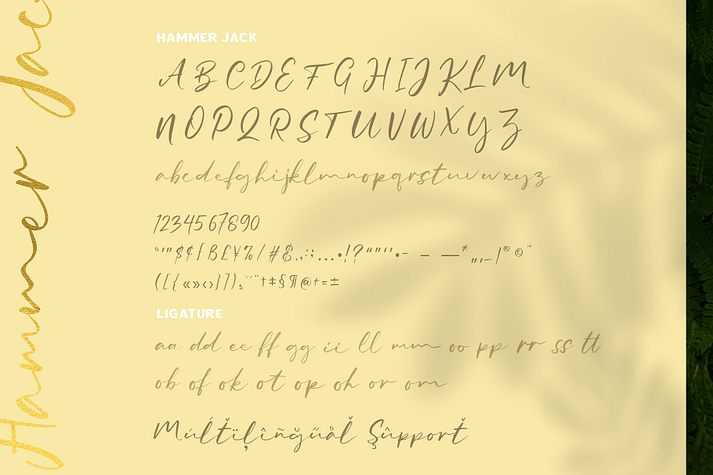 Hammer Jac
HAMMER JACK
A B C D E F G H I J K L M
N O P Q R S T U V W X Y Z
a b c d e f g h i j k l m n o p q r s t u v w x y z
1234567890
( [ { « » ‹ › } ] )
LIGATURE
aa dd ee ff gg ii ll mm oo pp rr ss tt
ob of ok ot op oh or om